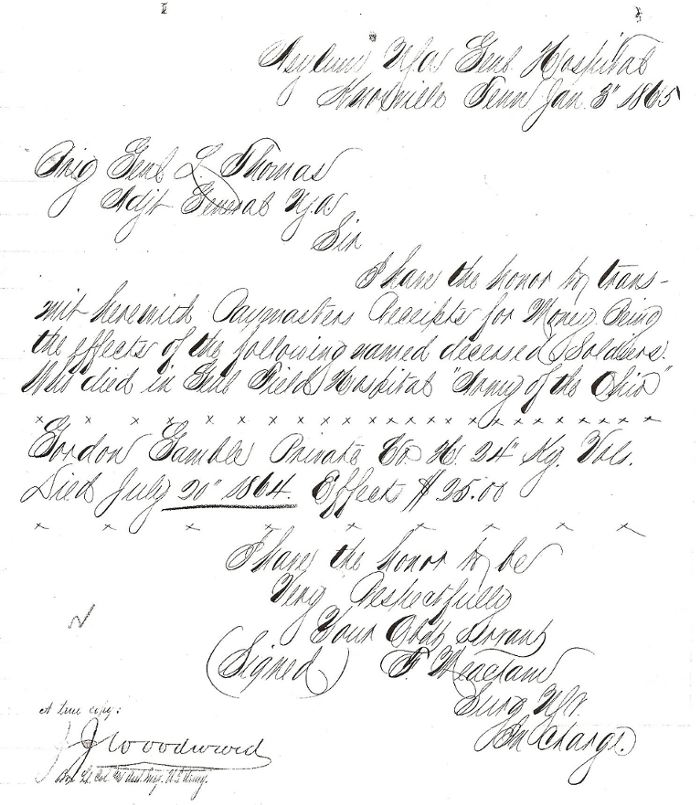 Asylum USA Genl Hospital
Knoxville Tenn Jan 3" 1865
Brig Genl L. Thomas
Adjt General USA
Sir
I have the honor to trans-
mit herewith Paymasters Receipts for Money Being
the effects of the following named deceased Soldiers.
Who died in Genl Field Hospital "Army of the Ohio"
x x x x x x x x x x x x x x x x x x x x x x
Gordon Gamble Private Co H. 24" Ky. Vols.
Died July 20" 1864. Effects $25.00
x x x x x x x x x
I have the honor to be
Very Respectfully
Your Obdt servant
(Signed) F Meacham
Surg USV.
In Charge.
A true copy:
J J Woodward
Bvt Lt Col U.S. Army.